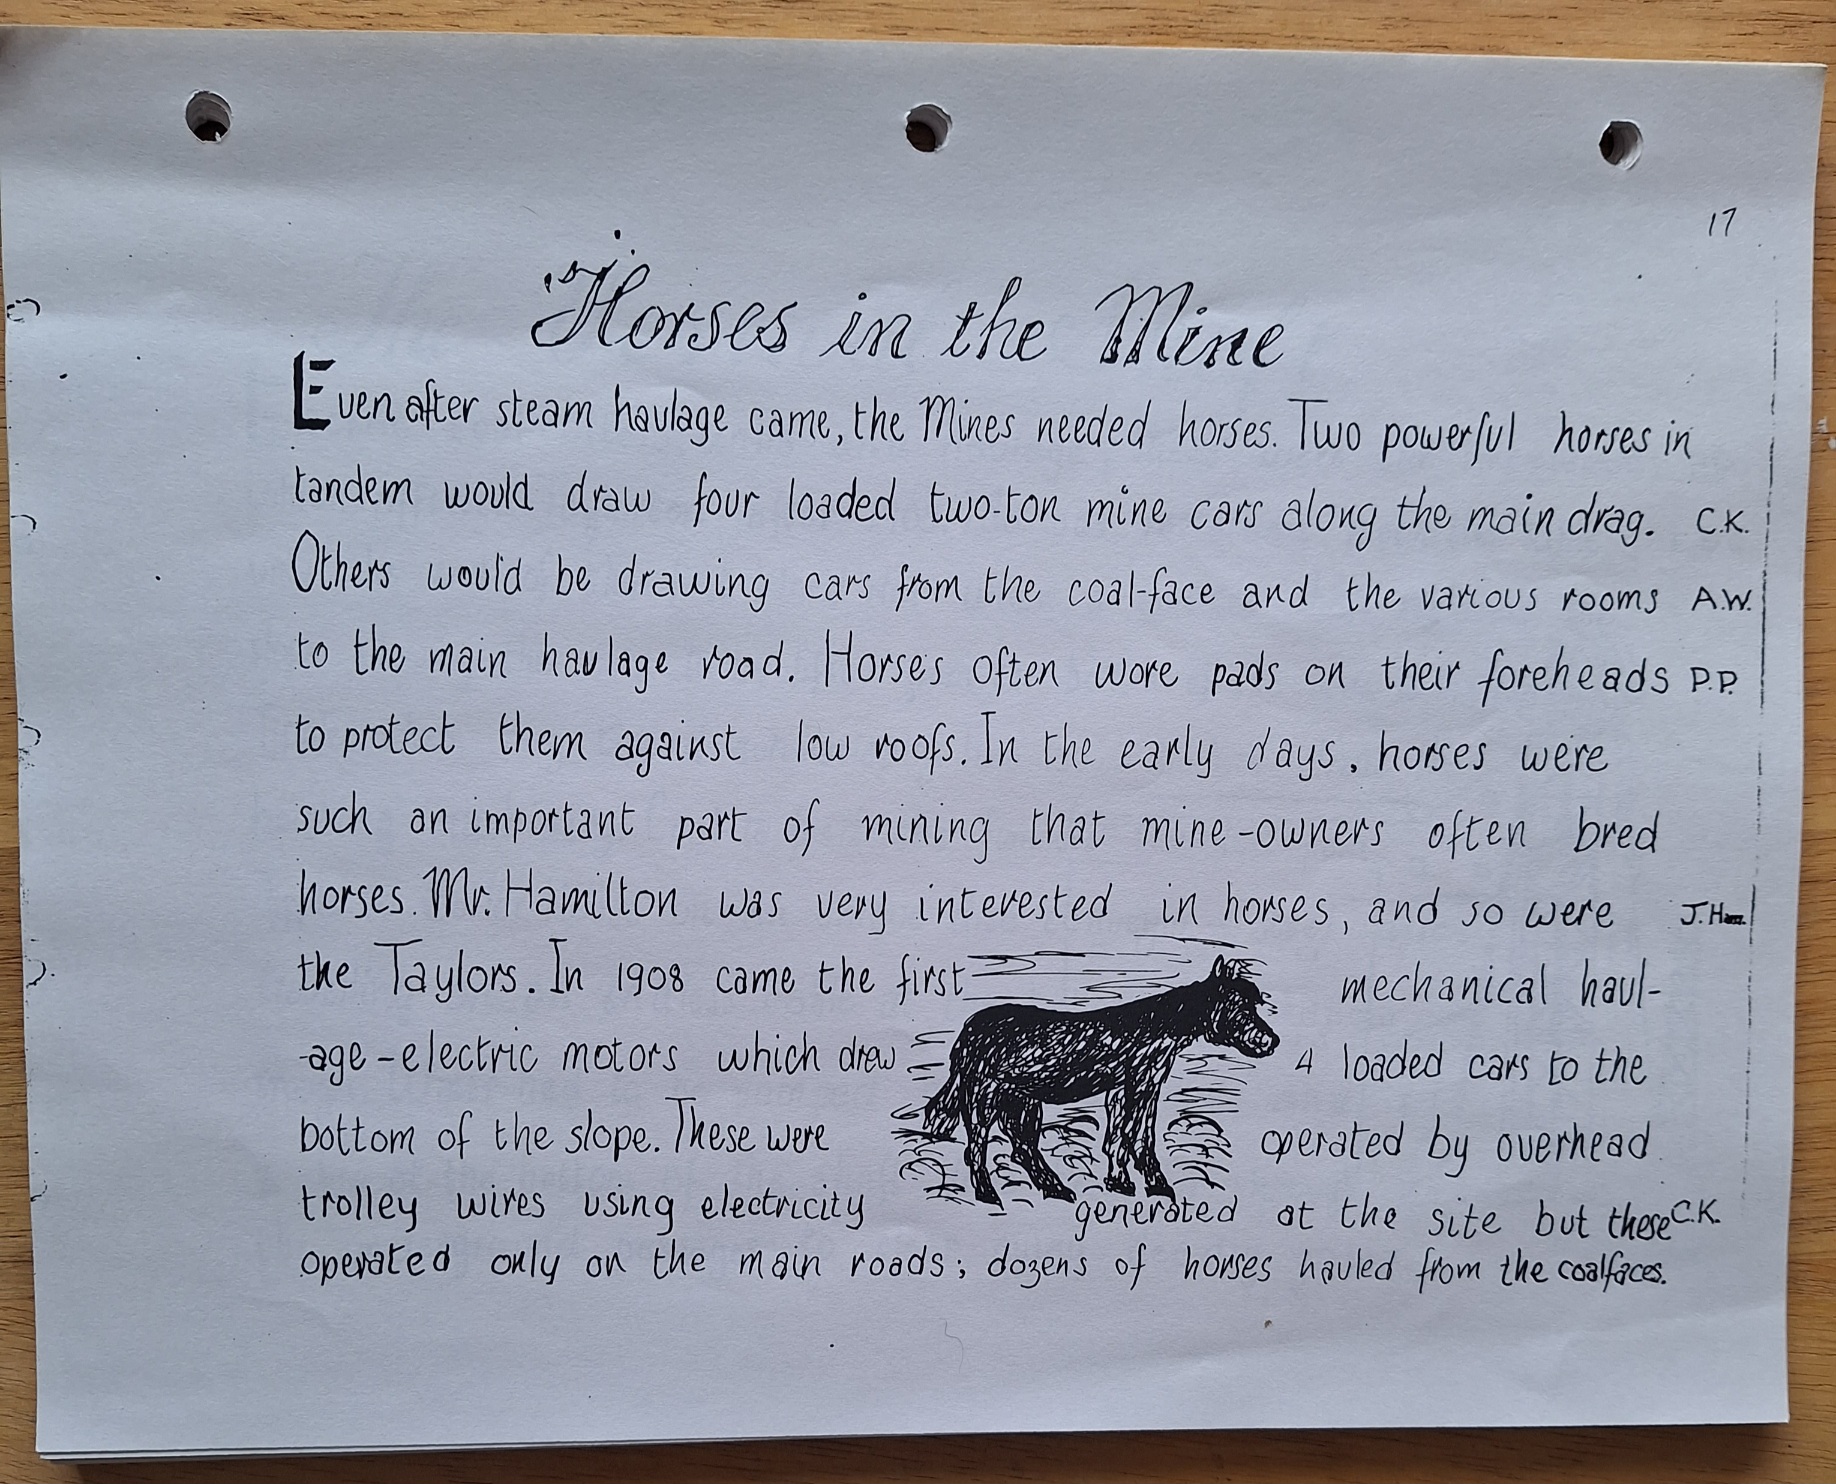 17
Horses in the Mine
Even after steam haulage came, the Mines needed horses. Two powerful horses in
tandem would draw four loaded two-ton mine cars along the main drag. C.K.
Others would be drawing cars from the coal-face and the various rooms A.W.
to the main haulage road. Horses often wore pads on their foreheads P.P.
to protect them against low roofs. In the early days, horses were
such an important part of mining that mine-owners often bred
horses. Mr. Hamilton was very interested in horses, and so were J.
the Taylors. In 1908 came the first mechanical haul-
-age-electric motors which drew 4 loaded cars to the
bottom of the slope. These were operated by overhead
trolley wires using electricity generated at the site but these C.K.
operated only on the main roads; dozens of horses hauled from the coalfaces.